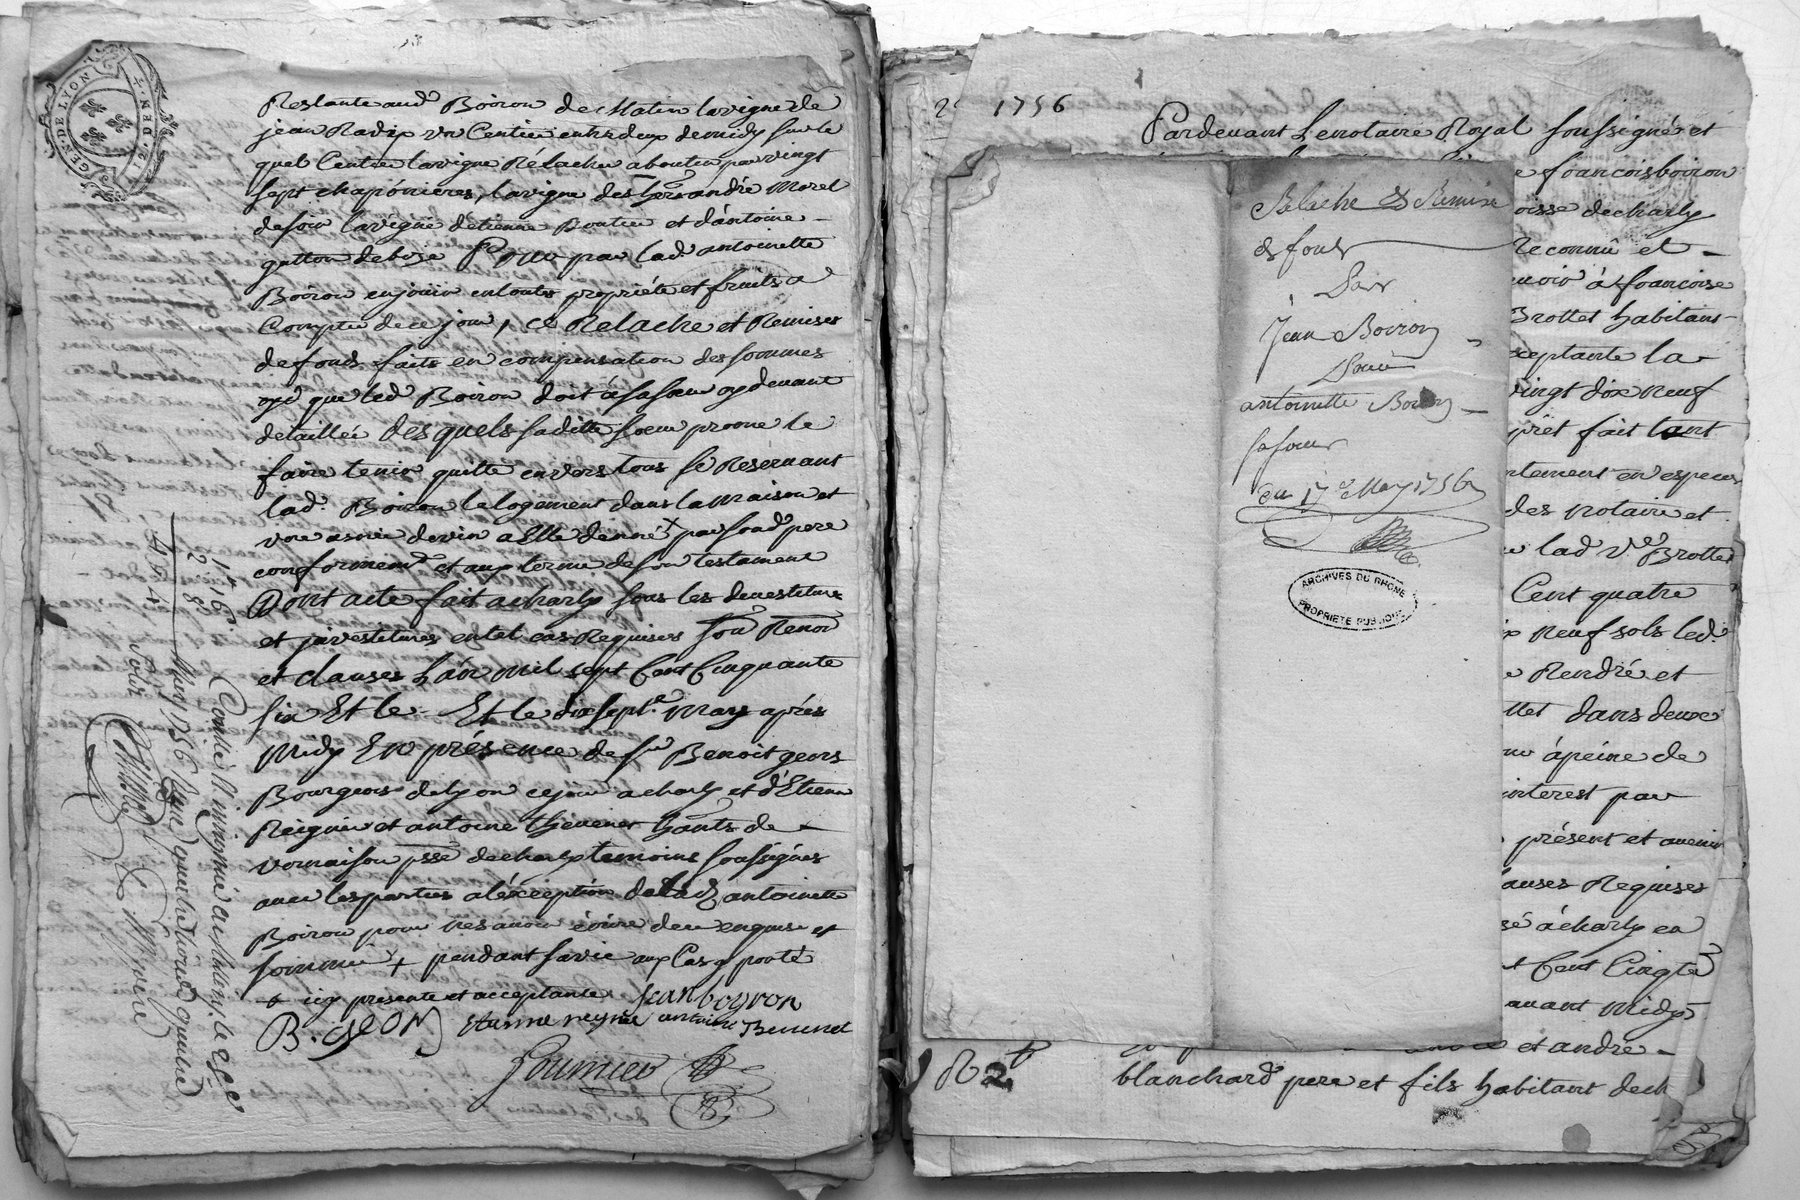 GEN · DE LYON
2 · DEN · 4
Restante aud. Boiron de Matin la vigne de
jean Radix un Centier entredeux de midy sur le
quel Centier la vigne Relachée aboutie par vingt
sept chaponieres, la vigne des hers andré Morel
de soir la vigne d'étienne Poutie et d'antoine
gutton de bize Pour par lad. antoinette
Boiron en jouir en toutes propriété et fruits a
Compter de ce jour, ce Relache et Remises
de fonds faits en compensation des sommes
que led. Boiron doit à sa soeur cy devant
détaillée des quels saditte soeur prome le
faire tenir quitte envers tous se Reservant
lad. Boiron le logement dans la maison et
une asnée de vin a Elle donné + par sond. pere
conformemt. et aux terme de son testament
Dont acte fait a charly sous les devestitures
et jnvestitures en tel cas Requises son Renon
et clauses L'an mil sept Cent Cinquante
six Et le Et le dix septe. may aprés
midy En présence de sr Benoit geors
Bourgeois de lyon ce jour a charly et d'Etienne
Reignié et antoine thevenet hants de
vernaison psse de charly temoins soussignés
avec les parties a l'éxception de lad. antoinette
Boiron pour ne savoir écrire de ce enquise et
sommée + pendant sa vie aux Cas y porté
+ icy presente et acceptante jean boyron
B. GEORS Etienne reynié antoine Thevenet
fournier
1# 16s
2 8
4# 4s
Conllé et insinué a st Andeol le 25e
May 1756 Reçu quatre livres quatre
sols
1756
Pardevant Le notaire Royal soussigné et
francois boiron
oisse de charly
Reconnû et
evoir à francoise
Brottet habitans
cceptante la
vingt dix neuf
prét fait tant
ntement en especes
des notaire et
lad. ve. Brottet
Cent quatre
neuf sols led.
Rendré et
ttet dans deux
à peine de
interest par
présent et avenir
auses Requises
sé à charly ea
Cent Cinqte
avant midy
et andré
blanchard pere et fils habitant dech
R 2
Relache & Remise
de fonds
Par
Jean Boiron
a
antoinette Boiron
sa soeur
du 17e May 1756
ARCHIVES DU RHONE
PROPRIETE PUBLIQUE